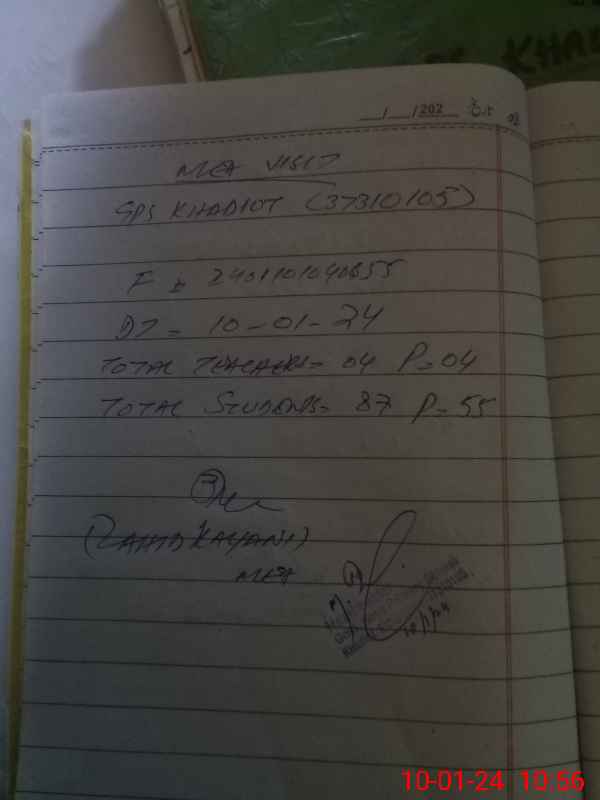 KHAD
__/__/202__
MEA VISIT
GPS KHADIOT (37310105)
F = 2401101040655
DT = 10-01-24
TOTAL TEACHERS= 04 P=04
TOTAL STUDENTS= 87 P=55
(ZAHID KAYANI)
MEA
10-01-24 10:56